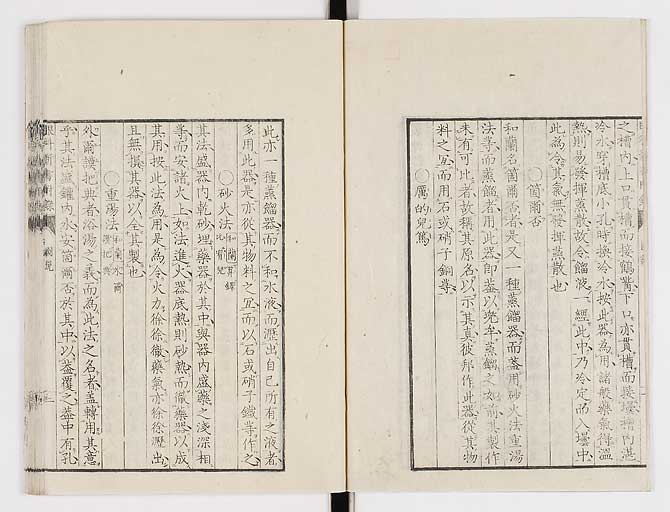 之槽内、上口貫槽、而接鶴嘴、下口亦貫槽、而装壜、槽内湛
冷水、穿槽底小孔、時換冷水、按此器為用、諸般藥氣得温
熱、則易發揮蒸散、故令餾液、一經此中、乃冷定而入壜中、
此為冷其氣、無發揮蒸散也、
○箇爾否
和蘭名箇爾否者、是又一種蒸餾器、而蓋用砂火法重湯
法等、而蒸餾者、用此器、即蓋以兜牟、蒸餾之如前、其製作
未有可比者、故稱其原名、以示其真、彼邦作此器、從其物
料之宜、而用石或硝子銅等、
○厲的兒篤
此亦一種蒸餾器、而不和水液、而瀝出自己所有之液者、
多用此器、是亦從其物料之宜、而以石或硝子鐵等作之、
○砂火法
其法、盛器内乾砂、埋藥器於其中、與器内盛藥之淺深相
等、而安諸火上、如法進火、器底熱則砂熱而徹藥器、以成
其用、按此法為用、是為令火力徐徐徹、藥氣亦徐徐瀝出、
且無損其器、以全其製也、
○重湯法
外爾護把與者、浴湯之義、而為此法之名者、蓋轉用其意
乎、其法盛鑵内水、安箇爾否於其中、以蓋覆之、蓋中有孔、